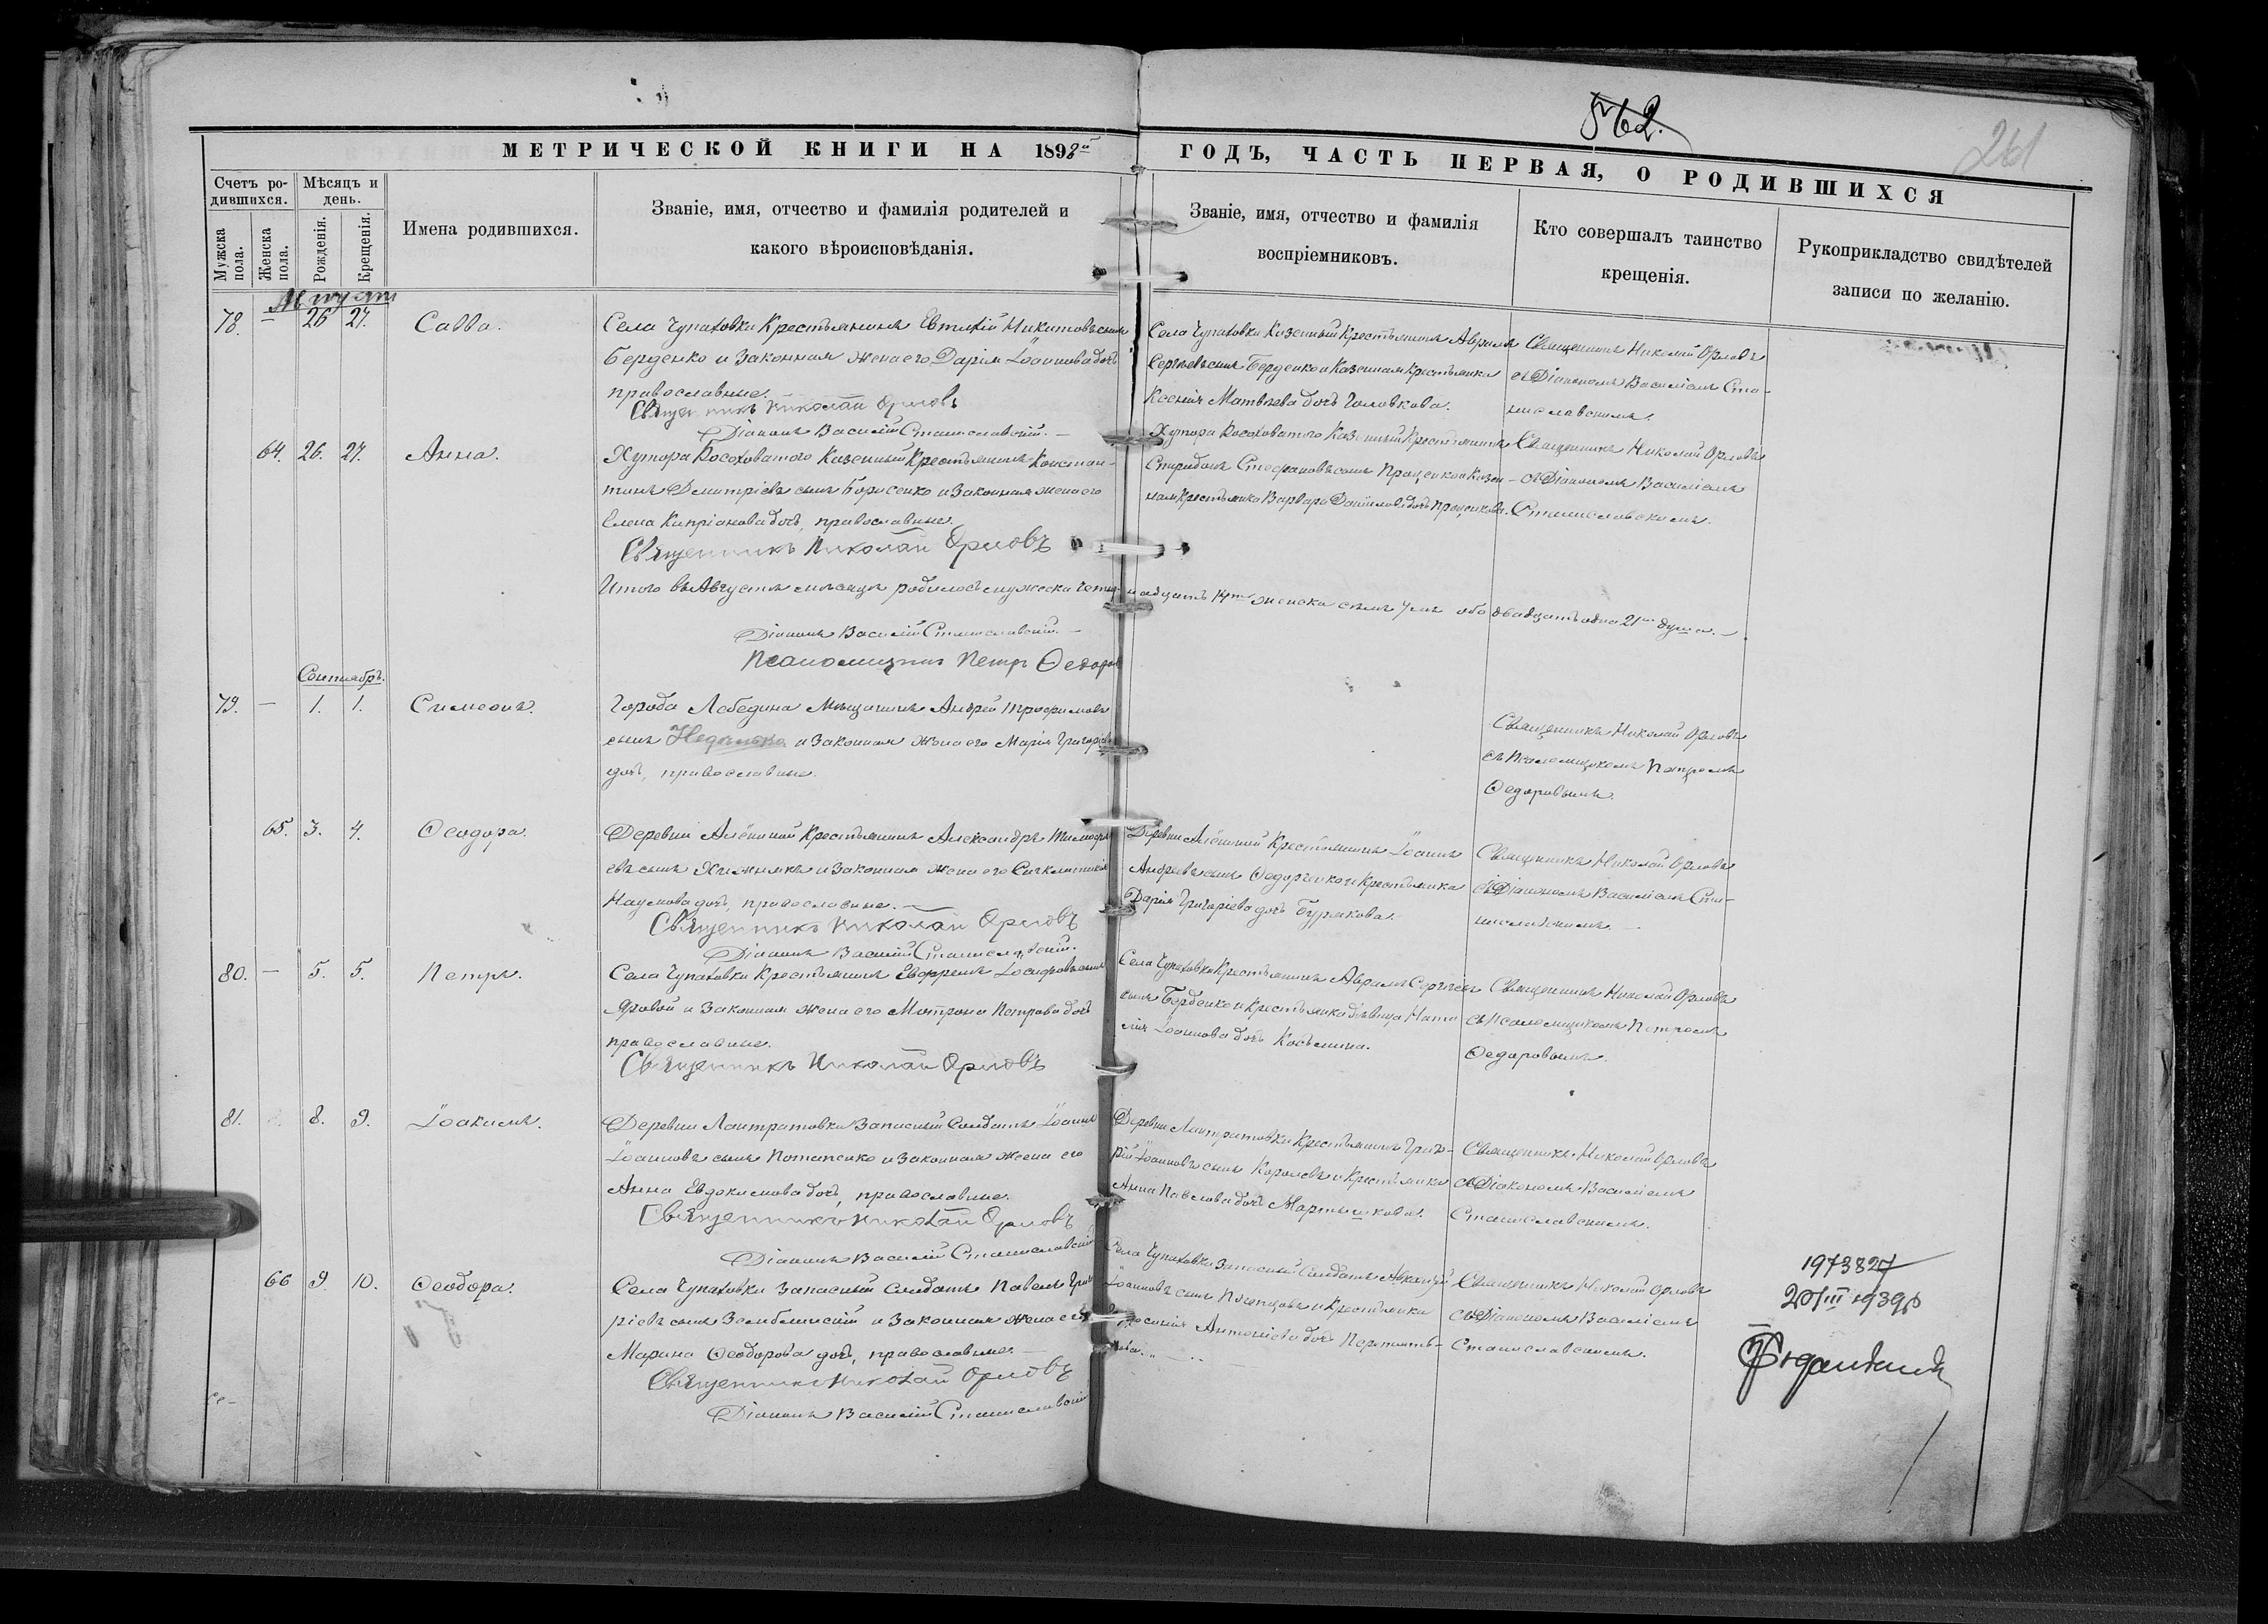 562.
261
МЕТРИЧЕСКОЙ КНИГИ НА 1898й ГОДЪ, ЧАСТЬ ПЕРВАЯ, О РОДИВШИХСЯ
Счетъ родившихся.
Мужска пола.
Женска пола.
Мѣсяцъ и день.
Рожденія.
Крещенія.
Имена родившихся.
Званіе, имя, отчество и фамилія родителей и какого вѣроисповѣданія.
Званіе, имя, отчество и фамилія воспріемниковъ.
Кто совершалъ таинство крещенія.
Рукоприкладство свидѣтелей записи по желанію.
Августъ
78. — 26 27. Савва.
Села Чупаховки Крестьянинъ Евтихій Никитовъ сынъ
Берденко и законная жена его Дарія Іоаннова дочь
православные.
Священникъ Николай Орловъ
Діаконъ Василій Станиславскій. —
Села Чупаховки Казенный Крестьянинъ Аврамъ
Сергѣевъ сынъ Берденко и Казенная Крестьянка
Ксенія Матвѣева дочь Головкова.
Священникъ Николай Орловъ
съ Діакономъ Василіемъ Ста-
ниславскимъ.
64. 26. 27. Анна.
Хутора Росоховатого Казенный Крестьянинъ Констан-
тинъ Димитріевъ сынъ Борисенко и законная жена его
Елена Кипріанова дочь, православные.
Священникъ Николай Орловъ
Хутора Росоховатого Казенный Крестьянинъ
Спиридонъ Стефановъ сынъ Проценко и Казен-
ная Крестьянка Варвара Даніилова дочь Проценкова.
Священникъ Николай Орловъ
съ Діакономъ Василіемъ
Станиславскимъ.
Итого въ Августѣ мѣсяцѣ родилось мужеска четырнадцать 14ть женска семь 7мь обо двадцать одна 21на душа. —
Діаконъ Василій Станиславскій. —
Псаломщикъ Петръ Ѳедоровъ
Сентябрь.
79. — 1. 1. Симеонъ.
Города Лебедина Мѣщанинъ Андрей Трофимовъ
сынъ и законная жена его Марія Григорьева
дочь, православные.
Священникъ Николай Орловъ
съ Псаломщикомъ Петромъ
Ѳедоровымъ.
65. 3. 4. Ѳеодора.
Деревни Алёшиной Крестьянинъ Александръ Тимофе-
евъ сынъ и законная жена его Синклитикія
Наумова дочь, православные. —
Священникъ Николай Орловъ
Діаконъ Василій Станиславскій.
Деревни Алёшиной Крестьянинъ Іоаннъ
Андреевъ сынъ Ѳедорченко и Крестьянка
Дарія Григоріева дочь Бурякова.
Священникъ Николай Орловъ
съ Діакономъ Василіемъ Ста-
ниславскимъ. —
80. — 5. 5. Петръ.
Села Чупаховки Крестьянинъ Евфремъ Іосифовъ сынъ
Яровой и законная жена его Матрона Петрова дочь
православные.
Священникъ Николай Орловъ
Села Чупаховки Крестьянинъ Аврамъ Сергѣевъ
сынъ Берденко и Крестьянка дѣвица Ната-
лія Іоаннова дочь Косьмина.
Священникъ Николай Орловъ
съ Псаломщикомъ Петромъ
Ѳедоровымъ.
81. 8. 9. Іоакимъ.
Деревни Лантратовки Запасный Солдатъ Іоаннъ
Іоанновъ сынъ Потапенко и законная жена его
Анна Евдокимова дочь, православные.
Священникъ Николай Орловъ
Діаконъ Василій Станиславскій
Деревни Лантратовки Крестьянинъ Григо-
рій Іоанновъ сынъ Королевъ и Крестьянка
Анна Павлова дочь Мартынкова.
Священникъ Николай Орловъ
съ Діакономъ Василіемъ
Станиславскимъ.
66 9. 10. Ѳеодора.
Села Чупаховки Запасный Солдатъ Павелъ Григо-
ріевъ сынъ и законная жена его
Марина Ѳеодорова дочь, православные. —
Священникъ Николай Орловъ
Діаконъ Василій Станиславскій
Села Чупаховки Запасный Солдатъ
Іоанновъ сынъ и Крестьянка
Антоніева дочь
Священникъ Николай Орловъ
съ Діакономъ Василіемъ
Станиславскимъ.
1973827
20/III 1939р